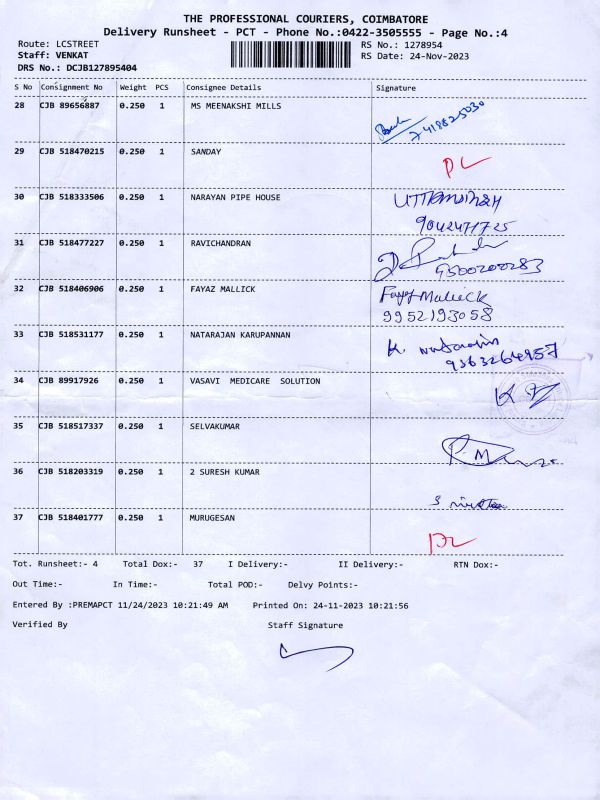 THE PROFESSIONAL COURIERS, COIMBATORE
Delivery Runsheet - PCT - Phone No.:0422-3505555 - Page No.:4
Route: LCSTREET RS No.: 1278954
Staff: VENKAT RS Date: 24-Nov-2023
DRS No.: DCJB127895404
S No Consignment No Weight PCS Consignee Details Signature
28 CJB 89656887 0.250 1 MS MEENAKSHI MILLS
7418825030
29 CJB 518470215 0.250 1 SANDAY
DL
30 CJB 518333506 0.250 1 NARAYAN PIPE HOUSE
9042471725
31 CJB 518477227 0.250 1 RAVICHANDRAN
9500200283
32 CJB 518406906 0.250 1 FAYAZ MALLICK Fayaz Mallick
9952193058
33 CJB 518531177 0.250 1 NATARAJAN KARUPPANNAN K. Natarajan
9363264957
34 CJB 89917926 0.250 1 VASAVI MEDICARE SOLUTION
35 CJB 518517337 0.250 1 SELVAKUMAR
36 CJB 518203319 0.250 1 2 SURESH KUMAR
37 CJB 518401777 0.250 1 MURUGESAN
DL
Tot. Runsheet:- 4 Total Dox:- 37 I Delivery:- II Delivery:- RTN Dox:-
Out Time:- In Time:- Total POD:- Delvy Points:-
Entered By :PREMAPCT 11/24/2023 10:21:49 AM Printed On: 24-11-2023 10:21:56
Verified By Staff Signature